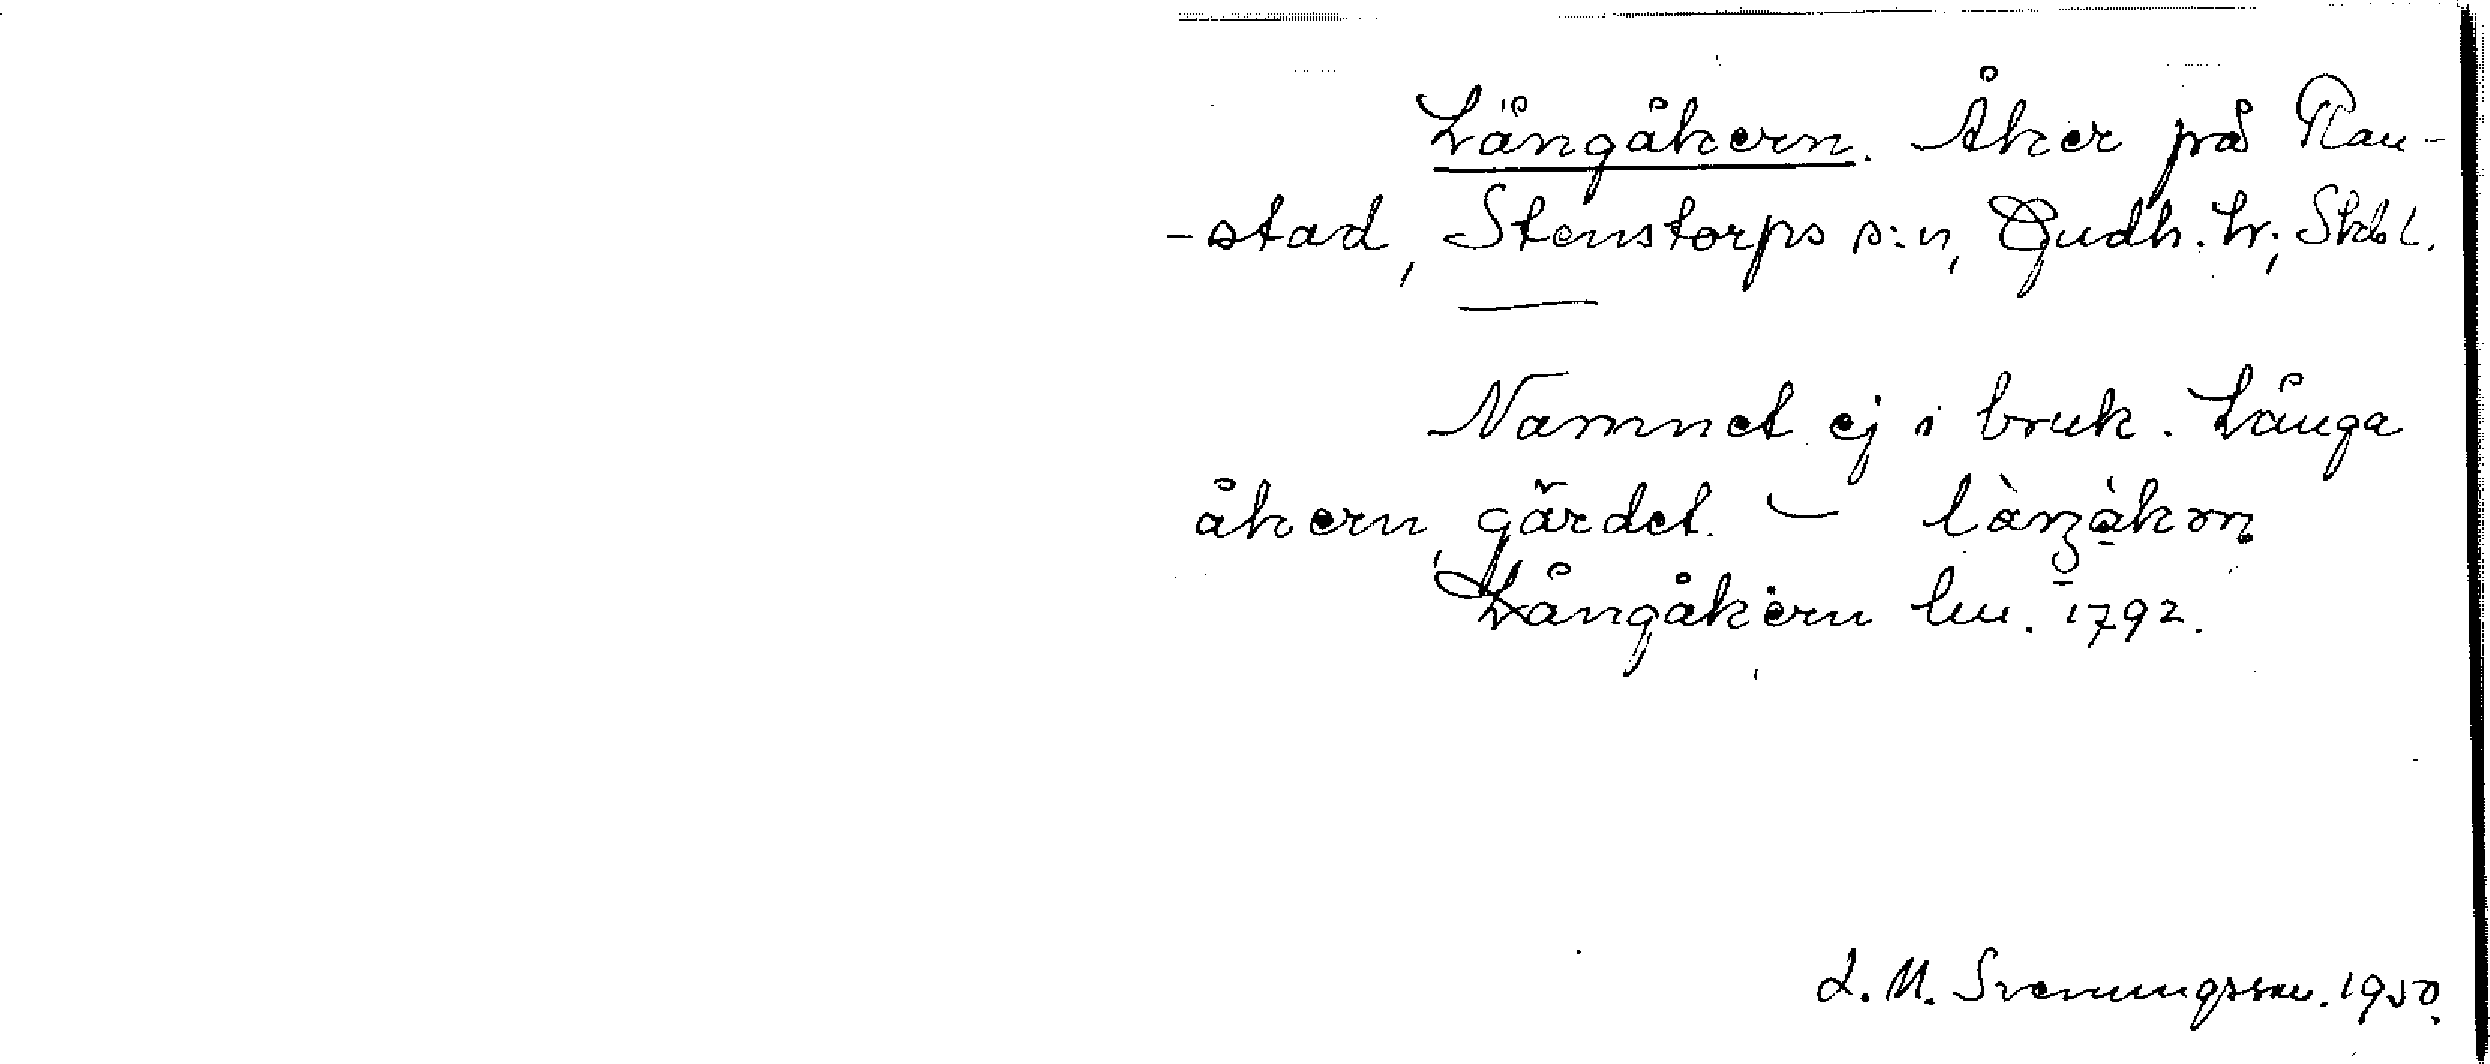 Långåkern. Åker på Ran-
-stad, Stenstorps s:n, Gudh. hr; Skbl.
Namnet ej i bruk. Långa
åkern, gärdet. – làŋåkərn
Långåkern lm. 1792.
L. M. Svenungsson. 1950.